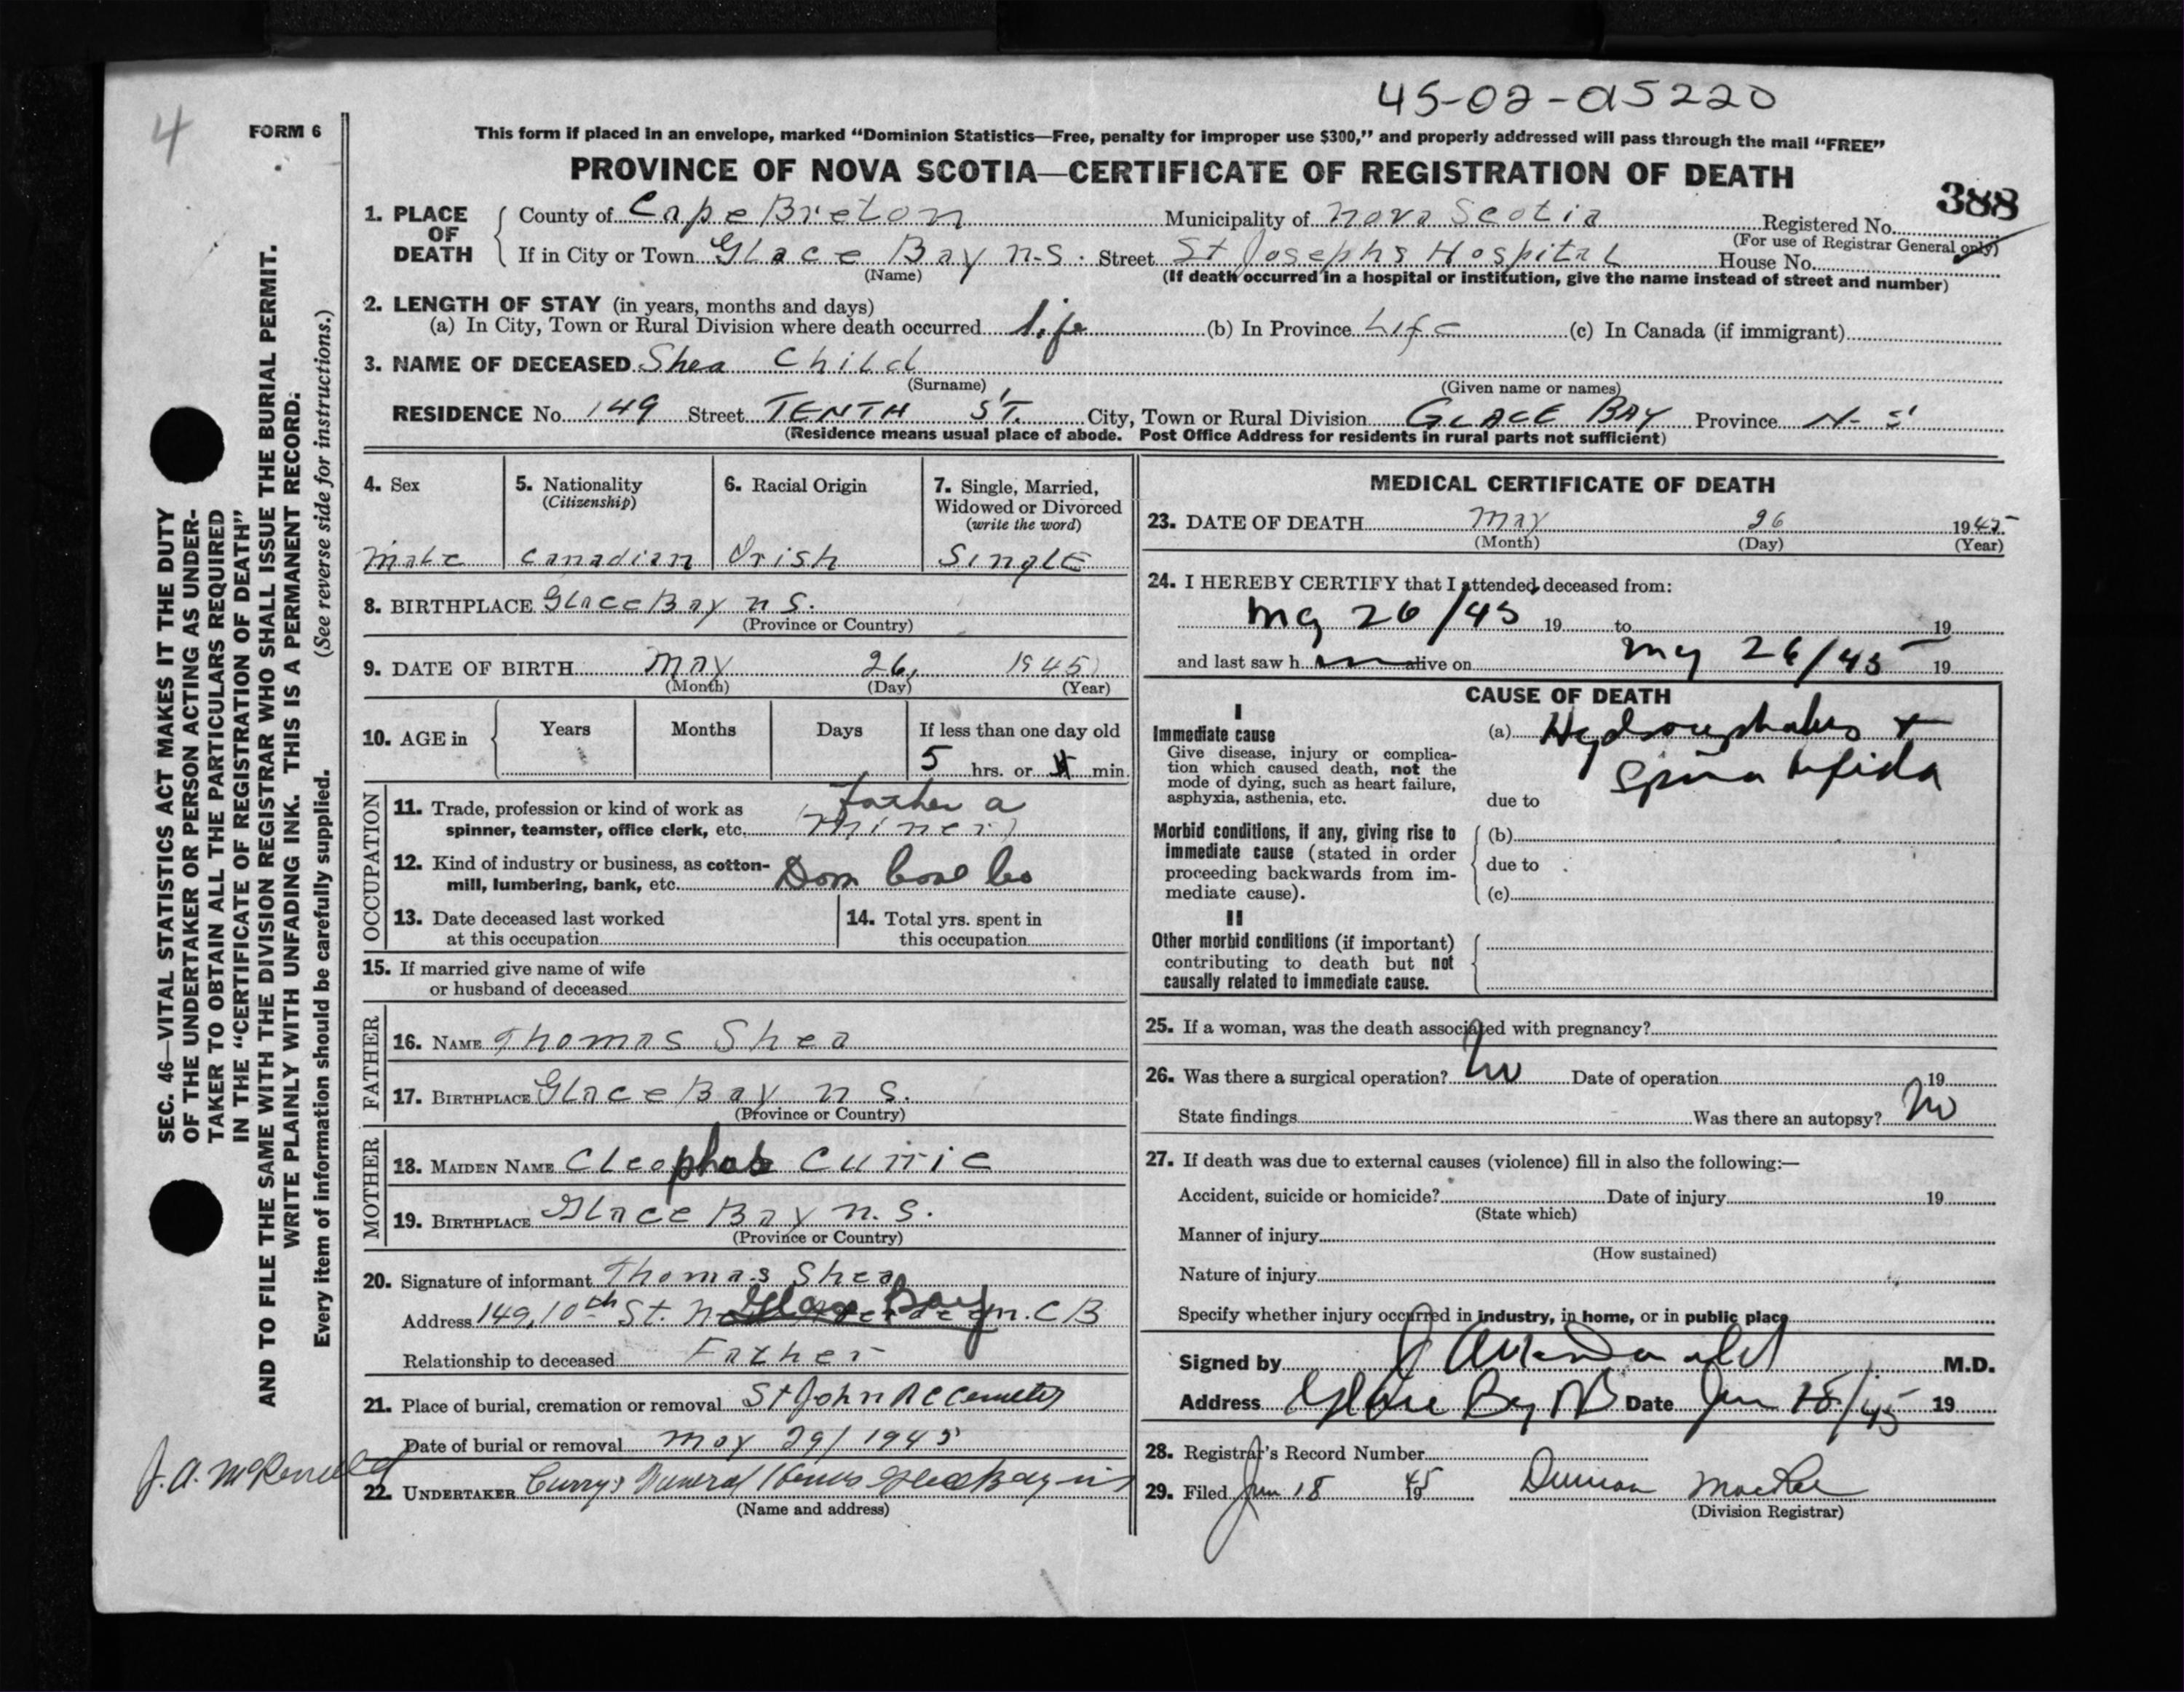 45-02-a5220
4
FORM 6
This form if placed in an envelope, marked “Dominion Statistics—Free, penalty for improper use $300,” and properly addressed will pass through the mail “FREE”
PROVINCE OF NOVA SCOTIA—CERTIFICATE OF REGISTRATION OF DEATH
388
1. PLACE OF DEATH
County of Cape Breton Municipality of Nova Scotia Registered No.
(For use of Registrar General only)
If in City or Town Glace Bay N.S. Street St Josephs Hospital House No.
(Name) (If death occurred in a hospital or institution, give the name instead of street and number)
2. LENGTH OF STAY (in years, months and days)
(a) In City, Town or Rural Division where death occurred life (b) In Province Life (c) In Canada (if immigrant)
3. NAME OF DECEASED Shea Child
(Surname) (Given name or names)
RESIDENCE No. 149 Street TENTH ST. City, Town or Rural Division GLACE BAY Province N-S
(Residence means usual place of abode. Post Office Address for residents in rural parts not sufficient)
4. Sex
male
5. Nationality
(Citizenship)
Canadian
6. Racial Origin
Irish
7. Single, Married,
Widowed or Divorced
(write the word)
Single
8. BIRTHPLACE Glace Bay N S.
(Province or Country)
9. DATE OF BIRTH May 26, 1945
(Month) (Day) (Year)
10. AGE in
Years Months Days If less than one day old
5 hrs. or min.
OCCUPATION
11. Trade, profession or kind of work as
spinner, teamster, office clerk, etc. (father a
miner)
12. Kind of industry or business, as cotton-
mill, lumbering, bank, etc. Dom Coal Co
13. Date deceased last worked
at this occupation
14. Total yrs. spent in
this occupation
15. If married give name of wife
or husband of deceased
FATHER
16. NAME Thomas Shea
17. BIRTHPLACE Glace Bay N S.
(Province or Country)
MOTHER
18. MAIDEN NAME Cleophas Currie
19. BIRTHPLACE Glace Bay N. S.
(Province or Country)
20. Signature of informant Thomas Shea
Address 149, 10th St. Glace Bay C B
Relationship to deceased Father
21. Place of burial, cremation or removal St John RC Cemetery
Date of burial or removal May 29/1945
22. UNDERTAKER Currys Funeral Home Glace Bay NS
(Name and address)
MEDICAL CERTIFICATE OF DEATH
23. DATE OF DEATH May 26 1945
(Month) (Day) (Year)
24. I HEREBY CERTIFY that I attended deceased from:
My 26/45 19 to 19
and last saw h alive on My 26/45 19
CAUSE OF DEATH
I
Immediate cause
Give disease, injury or complica-
tion which caused death, not the
mode of dying, such as heart failure,
asphyxia, asthenia, etc.
(a) Hydrocephalus +
Spina bifida
due to
Morbid conditions, if any, giving rise to
immediate cause (stated in order
proceeding backwards from im-
mediate cause).
(b)
due to
(c)
II
Other morbid conditions (if important)
contributing to death but not
causally related to immediate cause.
25. If a woman, was the death associated with pregnancy?
26. Was there a surgical operation? No Date of operation 19
State findings Was there an autopsy? No
27. If death was due to external causes (violence) fill in also the following:—
Accident, suicide or homicide? Date of injury 19
(State which)
Manner of injury
(How sustained)
Nature of injury
Specify whether injury occurred in industry, in home, or in public place
Signed by M.D.
Address Glace Bay Date Jun 18/45 19
28. Registrar's Record Number
29. Filed Jun 18 1945 Duncan MacRae
(Division Registrar)
SEC. 46—VITAL STATISTICS ACT MAKES IT THE DUTY
OF THE UNDERTAKER OR PERSON ACTING AS UNDER-
TAKER TO OBTAIN ALL THE PARTICULARS REQUIRED
IN THE “CERTIFICATE OF REGISTRATION OF DEATH”
AND TO FILE THE SAME WITH THE DIVISION REGISTRAR WHO SHALL ISSUE THE BURIAL PERMIT.
WRITE PLAINLY WITH UNFADING INK. THIS IS A PERMANENT RECORD:
Every item of information should be carefully supplied. (See reverse side for instructions.)